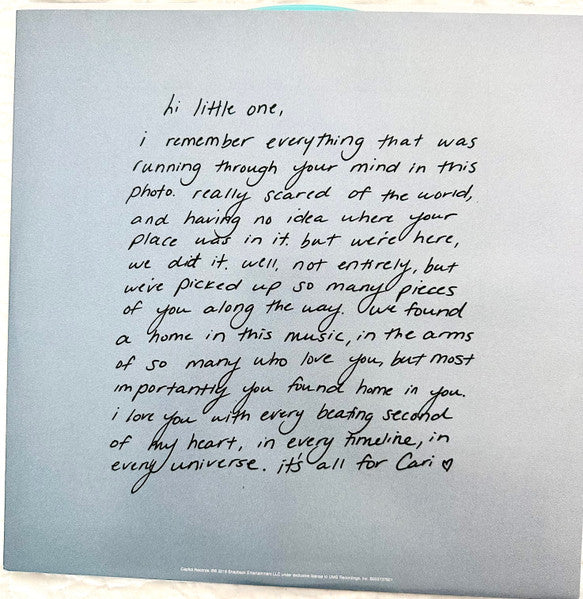 hi little one,
i remember everything that was
running through your mind in this
photo. really scared of the world,
and having no idea where your
place was in it. but we're here,
we did it. well, not entirely, but
we've picked up so many pieces
of you along the way. we found
a home in this music, in the arms
of so many who love you, but most
importantly you found home in you.
i love you with every beating second
of my heart, in every timeline, in
every universe. it's all for Cari ♡
Entertainment LLC under exclusive license to UMG Recordings, Inc.